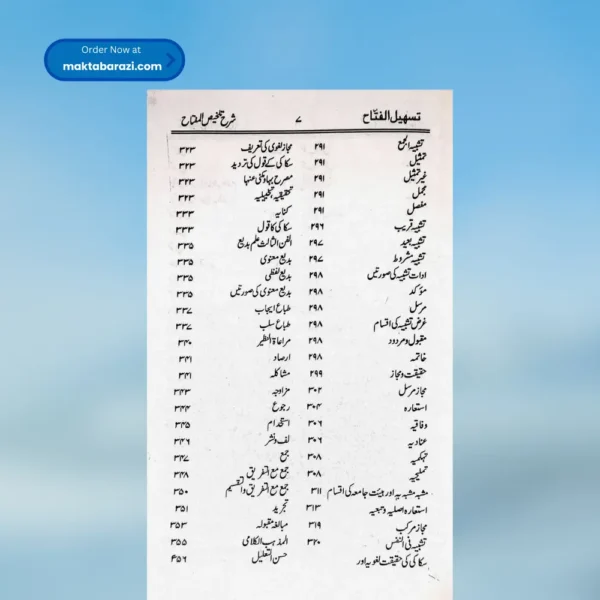 Order Now at
maktabarazi.com
تسهيل الفتّاح
۷
شرح تلخیص المفتاح
تشبیہ الجمع ۲۹۱
تمثیل ۲۹۱
غیر تمثیل ۲۹۱
مجمل ۲۹۱
مفصل ۲۹۱
تشبیہ قریب ۲۹۶
تشبیہ بعید ۲۹۷
تشبیہ مشروط ۲۹۷
ادات تشبیہ کی صورتیں ۲۹۸
مؤکد ۲۹۸
مرسل ۲۹۸
غرض تشبیہ کی اقسام ۲۹۸
مقبول ومردود ۲۹۸
خاتمہ ۲۹۸
حقیقت ومجاز ۲۹۹
مجاز مرسل ۳۰۲
استعارہ ۳۰۴
وفاقیہ ۳۰۶
عنادیہ ۳۰۶
تہکمیہ ۳۰۸
تملیحیہ ۳۰۸
مشبہ مشبہ بہ اور ہیئت جامعہ کی اقسام ۳۱۱
استعارہ اصلیہ وتبعیہ ۳۱۳
مجاز مرکب ۳۱۹
تشبیہ فی النفس ۳۲۰
سکاکی کی حقیقت لغویہ اور
مجاز لغوی کی تعریف ۳۲۳
سکاکی کے قول کی تردید ۳۲۳
مصرح بہا ومکنی عنہا ۳۲۳
تحقیقیہ تخییلیہ ۳۲۳
کنایہ ۳۳۳
سکاکی کا قول ۳۳۳
الفن الثالث علم بدیع ۳۳۵
بدیع معنوی ۳۳۵
بدیع لفظی ۳۳۵
بدیع معنوی کی صورتیں ۳۳۵
طباع ایجاب ۳۳۷
طباع سلب ۳۳۷
مراعاۃ النظیر ۳۴۰
ارصاد ۳۴۱
مشاکلہ ۳۴۱
مزاوجہ ۳۴۳
رجوع ۳۴۴
استخدام ۳۴۵
لف ونشر ۳۴۶
جمع ۳۴۷
جمع مع التفریق ۳۴۸
جمع مع التفریق والتقسیم ۳۵۰
تجرید ۳۵۱
مبالغہ مقبولہ ۳۵۳
المذہب الکلامی ۳۵۵
حسن التعلیل ۴۵۶